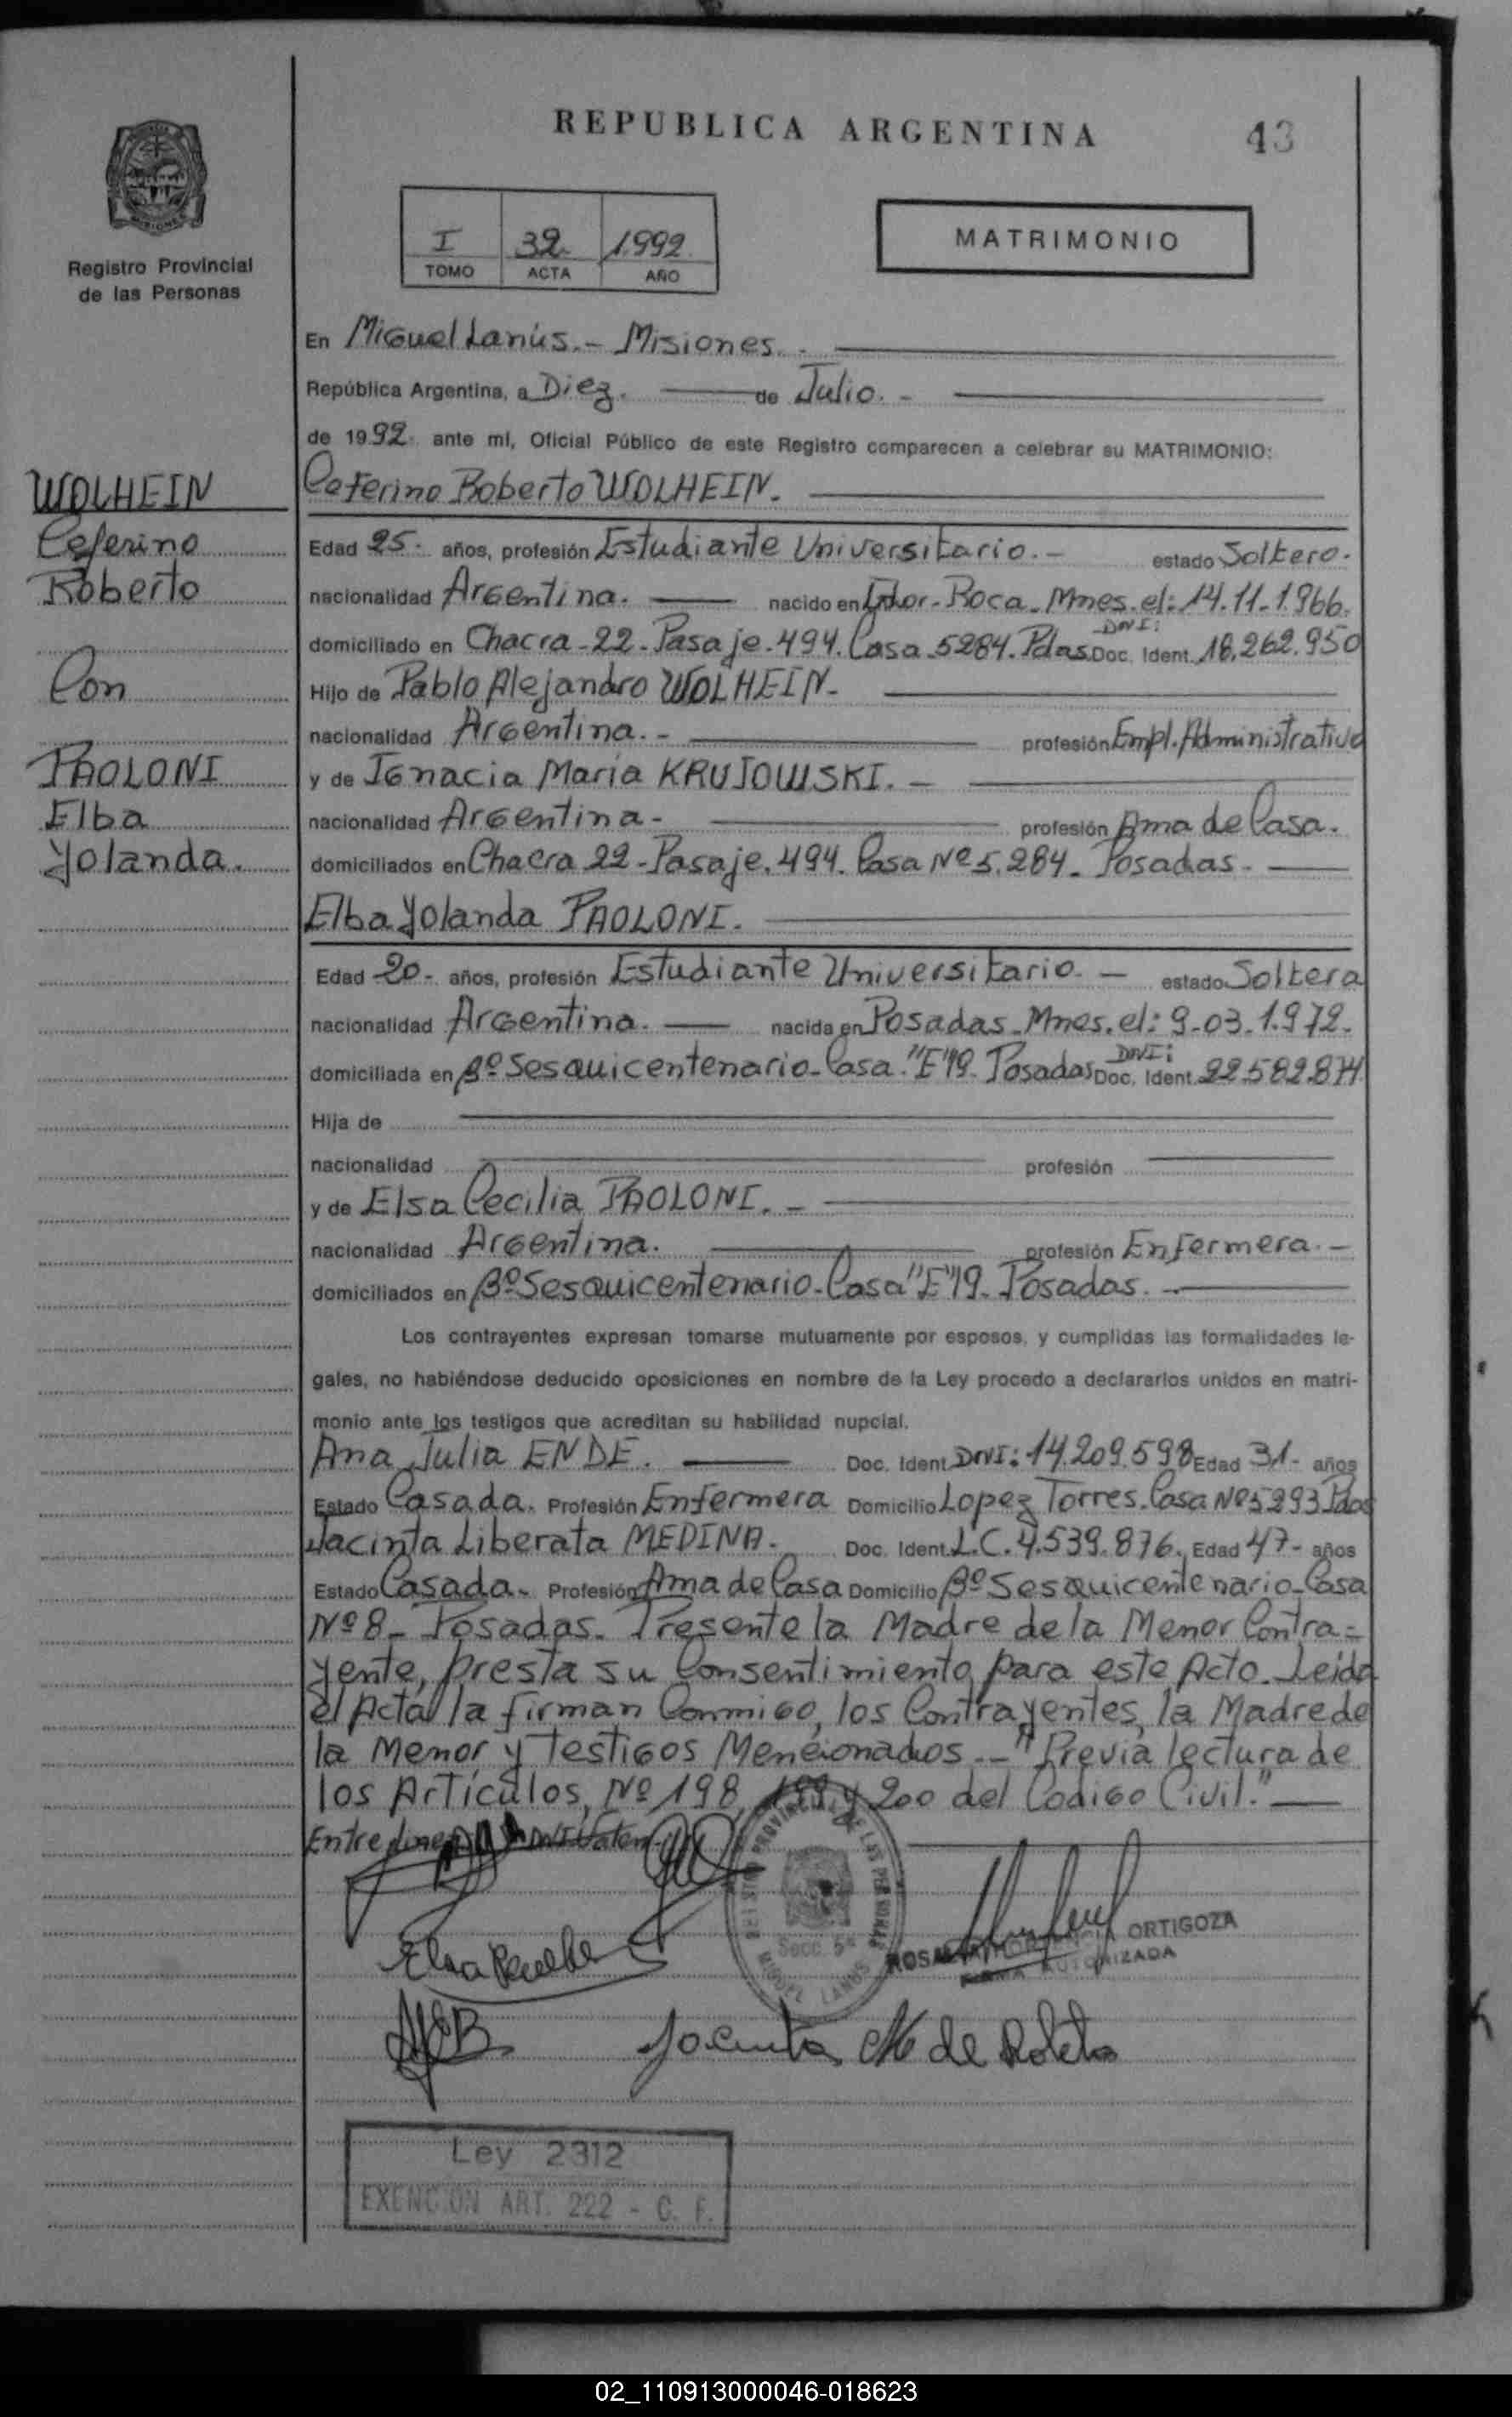 REPUBLICA ARGENTINA
43
Registro Provincial
de las Personas
I 32 1992
TOMO ACTA AÑO
MATRIMONIO
En Miguel Lanús.- Misiones.
República Argentina, a Diez. de Julio. -
de 1992. ante mí, Oficial Público de este Registro comparecen a celebrar su MATRIMONIO:
WOLHEIN
Ceferino
Roberto
Con
PAOLONI
Elba
Yolanda.
Ceferino Roberto WOLHEIN.
Edad 25. años, profesión Estudiante Universitario. - estado Soltero.
nacionalidad Argentina. nacido en Gdor. Roca. Mnes. el: 14.11.1966.
domiciliado en Chacra-22-Pasaje-494. Casa 5284. Pdas DNI: Doc. Ident. 18.262.950
Hijo de Pablo Alejandro WOLHEIN-
nacionalidad Argentina. - profesión Empl. Administrativo
y de Ignacia María KRUJOWSKI. -
nacionalidad Argentina - profesión Ama de Casa.
domiciliados en Chacra 22-Pasaje. 494. Casa Nº 5.284- Posadas-
Elba Yolanda PAOLONI.
Edad 20- años, profesión Estudiante Universitario. - estado Soltera
nacionalidad Argentina. nacida en Posadas-Mnes. el: 9-03-1.972.
domiciliada en Bº Sesquicentenario-Casa "E"19- Posadas DNI: Doc. Ident. 22.582.874
Hija de
nacionalidad profesión
y de Elsa Cecilia PAOLONI. -
nacionalidad Argentina. profesión Enfermera. -
domiciliados en Bº Sesquicentenario-Casa "E"19- Posadas.
Los contrayentes expresan tomarse mutuamente por esposos, y cumplidas las formalidades le-
gales, no habiéndose deducido oposiciones en nombre de la Ley procedo a declararlos unidos en matri-
monio ante los testigos que acreditan su habilidad nupcial.
Ana Julia ENDE. Doc. Ident. DNI: 14.209.598 Edad 31- años
Estado Casada. Profesión Enfermera Domicilio Lopez Torres. Casa Nº 5293 Pdas
Jacinta Liberata MEDINA. Doc. Ident. L.C. 4.539.876. Edad 47- años
Estado Casada- Profesión Ama de Casa Domicilio Bº Sesquicentenario-Casa
Nº 8- Posadas. Presente la Madre de la Menor Contra-
yente, presta su Consentimiento para este Acto. Leida
el Acta la firman Conmigo, los Contrayentes, la Madre de
la Menor y testigos Mencionados. - "Previa lectura de
los Artículos, Nº 198, 199 y 200 del Codigo Civil."
ORTIGOZA
FIRMA AUTORIZADA
REGISTRO PROVINCIAL DE LAS PERSONAS
MIGUEL LANUS
Jacinta M de
Ley 2312
EXENCION ART. 222 - C. F.
02_110913000046-018623